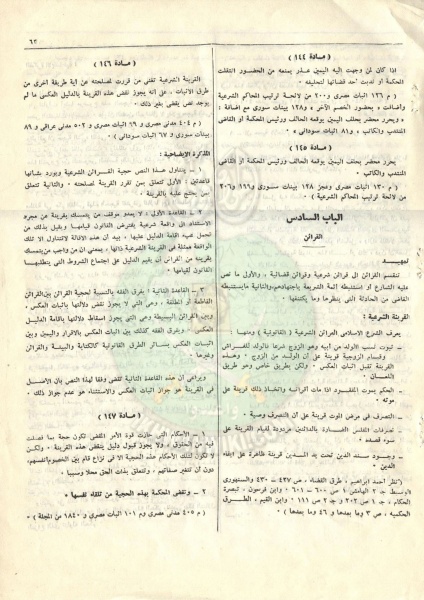 ٦٣
( مادة ١٤٤ )
اذا كان لمن وجهت اليه اليمين عذر يمنعه من الحضور انتقلت
المحكمة أو ندبت أحد قضاتها لتحليفه .
( م ١٢٦ اثبات مصرى و ٢٠٠ من لائحة ترتيب المحاكم الشرعية
وأضافت ، بحضور الخصم الآخر ، و ١٢٨ بينات سورى مع اضافة :
، ويحضر محضر بحلف اليمين يوقعه الحالف ورئيس المحكمة أو القاضى
المنتدب والكاتب ، و ٨١ اثبات سودانى . )
( مادة ١٤٥ )
يحرر محضر بحلف اليمين يوقعه الحالف ورئيس المحكمة أو القاضى
المنتدب والكاتب .
( م ١٣٠ اثبات مصرى وعجز ١٢٨ بينات سورى و ١٦٩ و ٢٠٦
من لائحة ترتيب المحاكم الشرعية )
الباب السادس
القرائن
تمهيد
تنقسم القرائن الى قرائن شرعية وقرائن قضائية ، والأولى ما نص
عليه الشارع أو استنبطه أئمة الشريعة باجتهادهم والثانية ما يستنبطه
القاضى من الحادثة التى ينظرها وما يكتنفها .
القرينة الشرعية :
يعرف الشرع الاسلامى القرائن الشرعية ( القانونية ) ومنها :
ـ ثبوت نسب الولد من أبيه وهو الزوج شرعا فالولد للفراش
وقيام الزوجية قرينة على أن الولد من الزوج . وهذه
القرينة تقبل اثبات العكس . ولكن بطريق خاص وهو طريق
اللعان .
ـ الحكم بموت المفقود اذا مات أقرانه واتخاذ ذلك قرينة على
موته .
ـ التصرف فى مرض الموت قرينة على أن التصرف وصية .
ـ تصرفات المفلس الضارة بالدائنين مردودة لقيام القرينة على
سوء قصده .
ـ وجود سند الدين تحت يد المدين قرينة ظاهرة على ايفاء
الدين .
( نظر أحمد ابراهيم ، طرق القضاء ، ص ٤٢٧ ـ ٤٣٠ والسنهورى
الوسيط جـ ٢ الهامش ١ ص ٦٠٠ ـ ٦٠١ . وابن فرحون ، تبصرة
الحكام ، جـ ١ ص ٢٠٢ و جـ ٢ ص ١١١ وابن القيم ، الطرق
الحكمية ، ص ٣ وما بعدها و ٤٦ وما بعدها )
( مادة ١٤٦ )
القرينة الشرعية تغنى من قررت لمصلحته عن أية طريقة أخرى من
طرق الاثبات ، على أنه يجوز نقض هذه القرينة بالدليل العكسى ما لم
يوجد نص يقضى بغير ذلك .
( م ٤٠٤ مدنى مصرى و ٩٩ اثبات مصرى و ٥٠٢ مدنى عراقى و ٨٩
بينات سورى و ٦٧ اثبات سودانى . )
المذكرة الايضاحية :
١ ـ يتناول هذا النص حجية القرائن الشرعية ويورد بشأنها
قاعدتين ، الأولى تتعلق بمن تقرر القرينة لمصلحته ، والثانية تتعلق
بمن يحتج عليه بالقرينة .
٢ ـ القاعدة الأولى : لا يعدو موقف من يتمسك بقرينة عن مجرد
الاستناد الى واقعة شرعية يفترض القانون قيامها . وينقل بذلك من
تحمل عبء اقامة الدليل عليها ، بيد أن هذه الاقالة لا تتناول الا تلك
الواقعة ممثلة فى القرينة الشرعية ذاتها . بمعنى أن من واجب من يتمسك
بقرينة من القرائن أن يقيم الدليل على اجتماع الشروط التى يتطلبها
القانون لقيامها .
٣ ـ القاعدة الثانية : يفرق الفقه بالنسبة لحجية القرائن بين القرائن
القاطعة أو المطلقة ، وهى التى لا يجوز نقض دلالتها باثبات العكس
وبين القرائن البسيطة وهى التى يجوز اسقاط دلالتها باقامة الدليل
العكسى . ويفرق الفقه كذلك بين اثبات العكس بالاقرار واليمين وبين
اثبات العكس بسائر الطرق القانونية كالكتابة والبينة والقرائن
وغيرها .
ويراعى أن هذه القاعدة الثانية تقتضى وفقا لهذا النص بأن الأصل
فى القرينة هو جواز اثبات العكس والاستثناء هو عدم جواز ذلك .
( مادة ١٤٧ )
١ ـ الأحكام التى حازت قوة الأمر المقضى تكون حجة بما فصلت
فيه من الحقوق ، ولا يجوز قبول دليل ينقض هذه القرينة . ولكن
لا تكون لتلك الأحكام هذه الحجية الا فى نزاع قام بين الخصوم أنفسهم ،
دون أن تتغير صفاتهم ، وتتعلق بذات الحق محلا وسببا .
٢ ـ وتقضى المحكمة بهذه الحجية من تلقاء نفسها .
( م ٤٠٥ مدنى مصرى و م ١٠١ اثبات مصرى و ١٨٤٠ من المجلة )